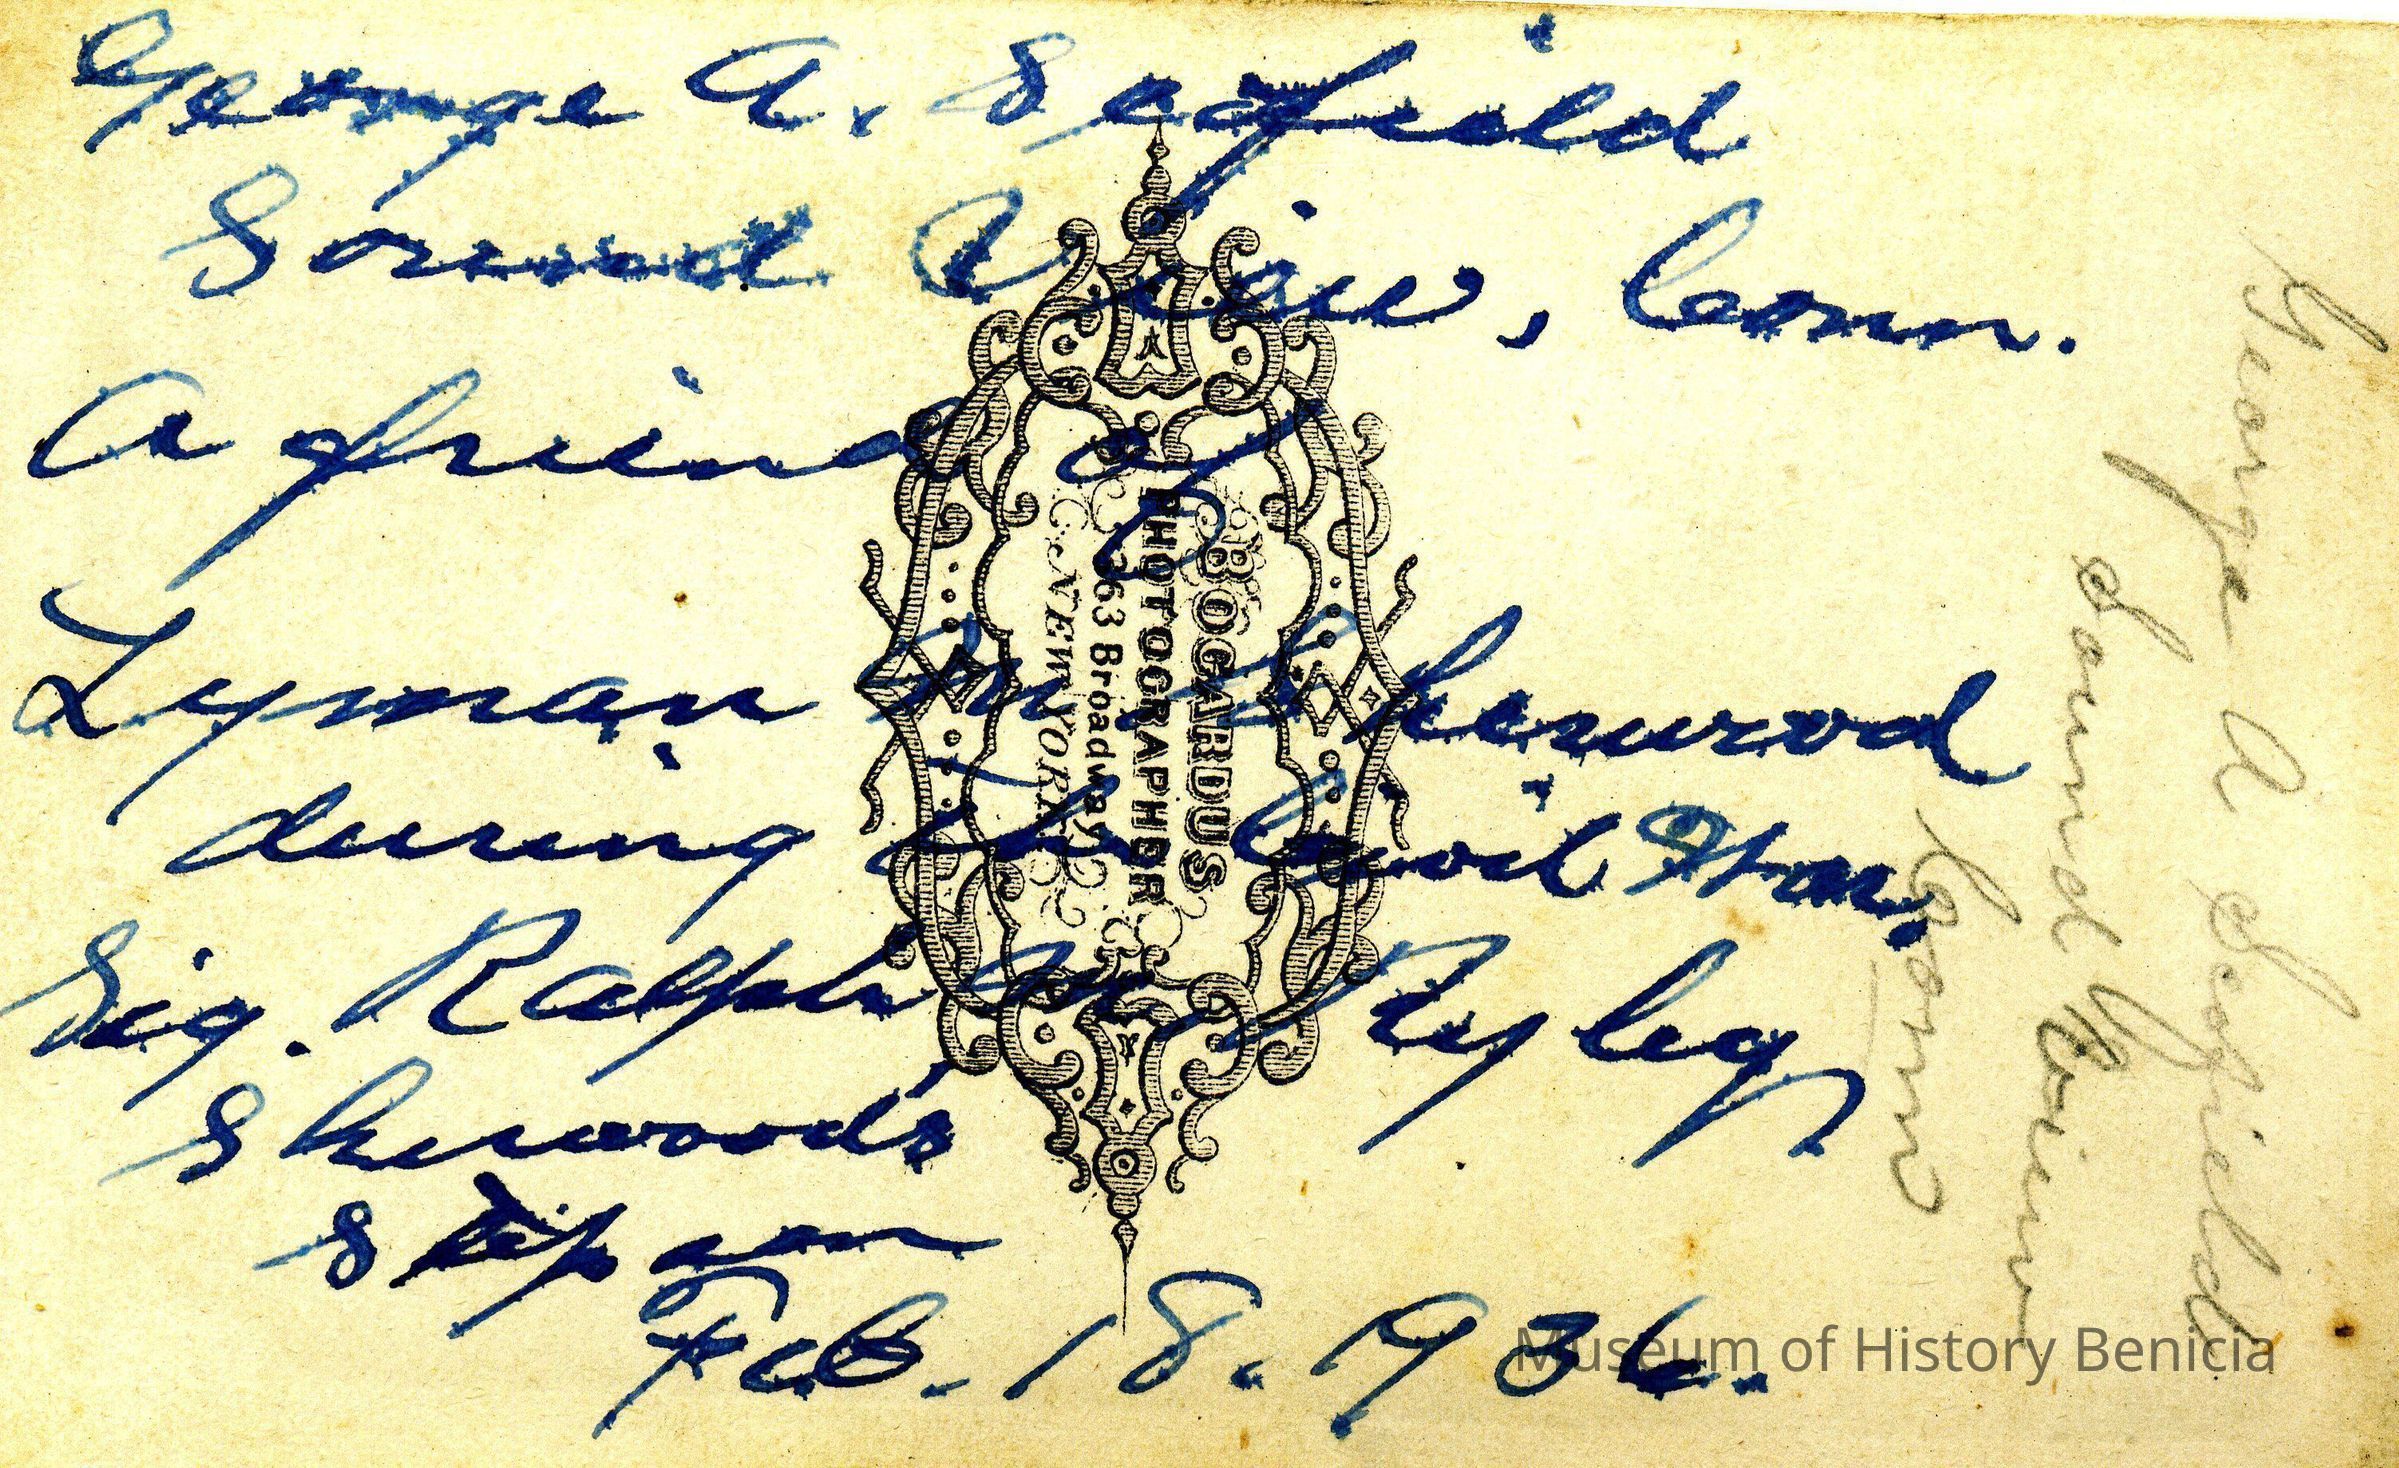 George A. Seofield
Sound View, Conn.
A friend of
Lyman M Sherwood
during the Civil War.
Sig. Ralph Ryley
Sherwood's
step son
Feb. 18. 1936.
BOGARDUS
PHOTOGRAPHER
363 Broadway
NEW YORK
George A Scofield
Sound View
Conn
Museum of History Benicia